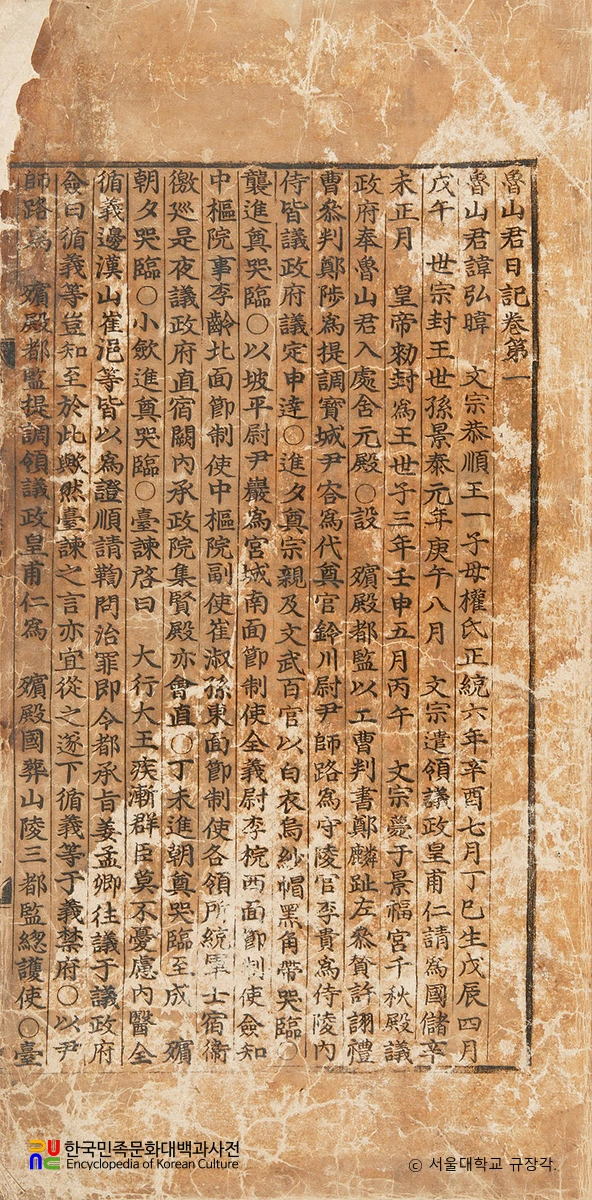 魯山君日記卷第一
魯山君諱弘暐 文宗恭順王一子母權氏正統六年辛酉七月丁巳生戊辰四月
戊午 世宗封王世孫景泰元年庚午八月 文宗遣領議政皇甫仁請爲國儲辛
未正月 皇帝勑封爲王世子三年壬申五月丙午 文宗薨于景福宮千秋殿議
政府奉魯山君入處舍元殿○設 殯殿都監以工曹判書鄭麟趾左參贊許詡禮
曹參判鄭陟爲提調寶城尹容爲代奠官鈴川尉尹師路爲守陵官李貴爲侍陵內
侍皆議政府議定申達○進夕奠宗親及文武百官以白衣烏紗帽黑角帶哭臨○
襲進奠哭臨○以坡平尉尹巖爲宮城南面節制使全義尉李梡西面節制使僉知
中樞院事李齡北面節制使中樞院副使崔淑孫東面節制使各領所統軍士宿衛
徼廵是夜議政府直宿闕內承政院集賢殿亦會直○丁未進朝奠哭臨至成 殯
朝夕哭臨○小斂進奠哭臨○臺諫啓曰 大行大王疾漸群臣莫不憂慮內醫全
循義邊漢山崔浥等皆以爲證順請鞫問治罪即令都承旨姜孟卿往議于議政府
僉曰循義等豈知至於此歟然臺諫之言亦宜從之遂下循義等于義禁府○以尹
師路爲 殯殿都監提調領議政皇甫仁爲 殯殿國葬山陵三都監緫護使○臺
한국민족문화대백과사전
Encyclopedia of Korean Culture
ⓒ 서울대학교 규장각.